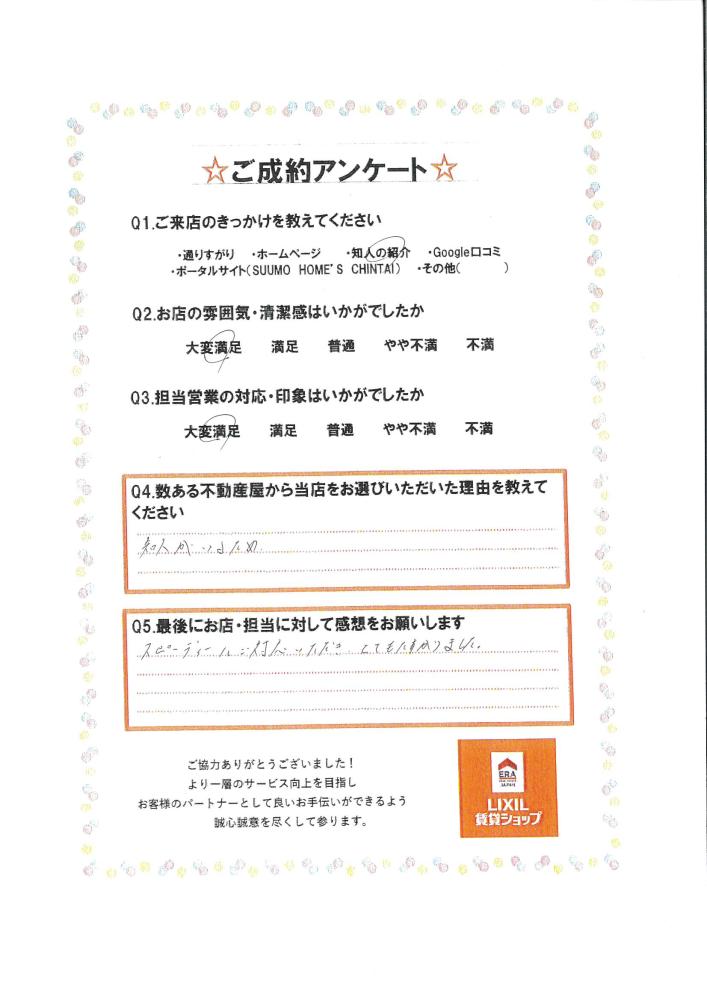 ☆ご成約アンケート☆
Q1.ご来店のきっかけを教えてください
・通りすがり ・ホームページ ・知人の紹介 ・Google口コミ
・ポータルサイト(SUUMO HOME'S CHINTAI) ・その他( )
Q2.お店の雰囲気・清潔感はいかがでしたか
大変満足 満足 普通 やや不満 不満
Q3.担当営業の対応・印象はいかがでしたか
大変満足 満足 普通 やや不満 不満
Q4.数ある不動産屋から当店をお選びいただいた理由を教えて
ください
知人がいるため
Q5.最後にお店・担当に対して感想をお願いします
スピーディーに対応いただき とても助かりました。
ご協力ありがとうございました!
より一層のサービス向上を目指し
お客様のパートナーとして良いお手伝いができるよう
誠心誠意を尽くして参ります。
ERA
JAPAN
LIXIL
賃貸ショップ